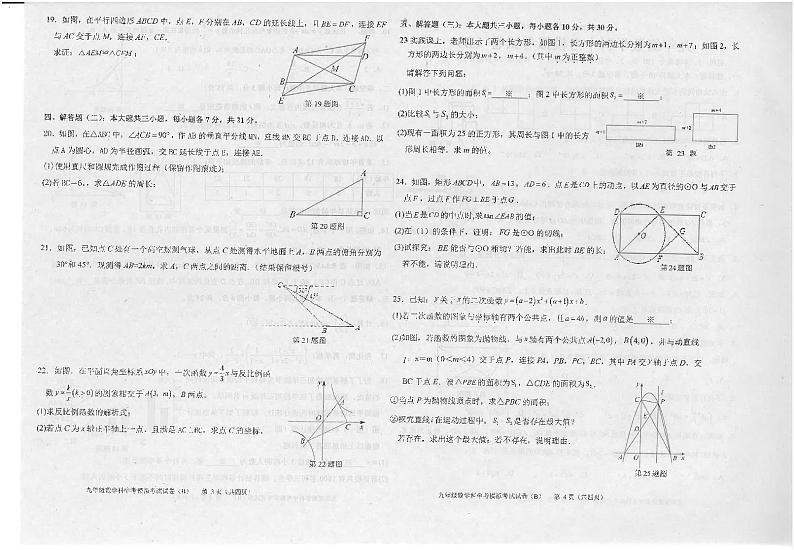 19. 如图，在平行四边形 ABCD 中，点 E、F 分别在 AB、CD 的延长线上，且 BE=DF，连接 EF
与 AC 交于点 M，连接 AF、CE．
求证：△AEM≌△CFM；
第19题图
四、解答题（二）：本大题共三小题，每小题各 7 分，共 21 分．
20. 如图，在△ABC 中，∠ACB=90°，作 AB 的垂直平分线 MN，直线 MN 交 BC 于点 D，连接 AD．以
点 A 为圆心，AD 为半径画弧，交 BC 延长线于点 E，连接 AE．
(1)使用直尺和圆规完成作图过程（保留作图痕迹）；
(2)若 BC=6，求△ADE 的周长；
第20题图
21. 如图，已知点 C 处有一个高空探测气球，从点 C 处测得水平地面上 A，B 两点的俯角分别为
30°和 45°．现测得 AB=2km，求 A，C 两点之间的距离．（结果保留根号）
第21题图
22. 如图，在平面直角坐标系 xOy 中，一次函数
与反比例函
数 y=k/x(k>0)的图象相交于 A(3，m)，B 两点．
(1)求反比例函数的解析式；
(2)若点 C 为 x 轴正半轴上一点，且满足 AC⊥BC，求点 C 的坐标．
第22题图
九年级数学科中考模拟考试试卷（B） 第 3 页（共四页）
五、解答题（三）：本大题共三小题，每小题各 10 分，共 30 分．
23 实践课上，老师出示了两个长方形，如图1，长方形的两边长分别为 m+1，m+7；如图 2，长
方形的两边长分别为 m+2，m+4．（其中 m 为正整数）
请解答下列问题：
(1)图 1 中长方形的面积 S₁= ※ ；图 2 中长方形的面积 S₂= ※ ；
(2)比较 S₁ 与 S₂ 的大小；
(2)现有一面积为 25 的正方形，其周长与图 1 中的长方
形周长相等，求 m 的值．
m+7
m+1
图1
m+4
m+2
图2
第 23 题
24. 如图，矩形 ABCD 中，AB=13，AD=6．点 E 是 CD 上的动点，以 AE 为直径的⊙O 与 AB 交于
点 F，过点 F 作 FG⊥BE 于点 G．
(1)当 E 是 CD 的中点时，求 tan∠EAB 的值；
(2)在（1）的条件下，证明：FG 是⊙O 的切线；
(3)试探究：BE 能否与⊙O 相切？若能，求出此时 BE 的长；
若不能，请说明理由．
第24题图
25. 已知：y 关于 x 的二次函数 y=(a-2)x²+(a+1)x+b．
(1)若二次函数的图象与坐标轴有两个公共点，且 a=4b，则 a 的值是 ※ ；
(2)如图，若函数的图象为抛物线，与 x 轴有两个公共点 A(-2,0)，B(4,0)，并与动直线
l：x=m（0<m<4）交于点 P，连接 PA，PB，PC，BC，其中 PA 交 y 轴于点 D，交
BC 于点 E．设△PBE 的面积为 S₁，△CDE 的面积为 S₂．
①当点 P 为抛物线顶点时，求△PBC 的面积；
②探究直线 l 在运动过程中，S₁-S₂ 是否存在最大值？
若存在，求出这个最大值；若不存在，说明理由．
第25题图
九年级数学科中考模拟考试试卷（B） 第 4 页（共四页）